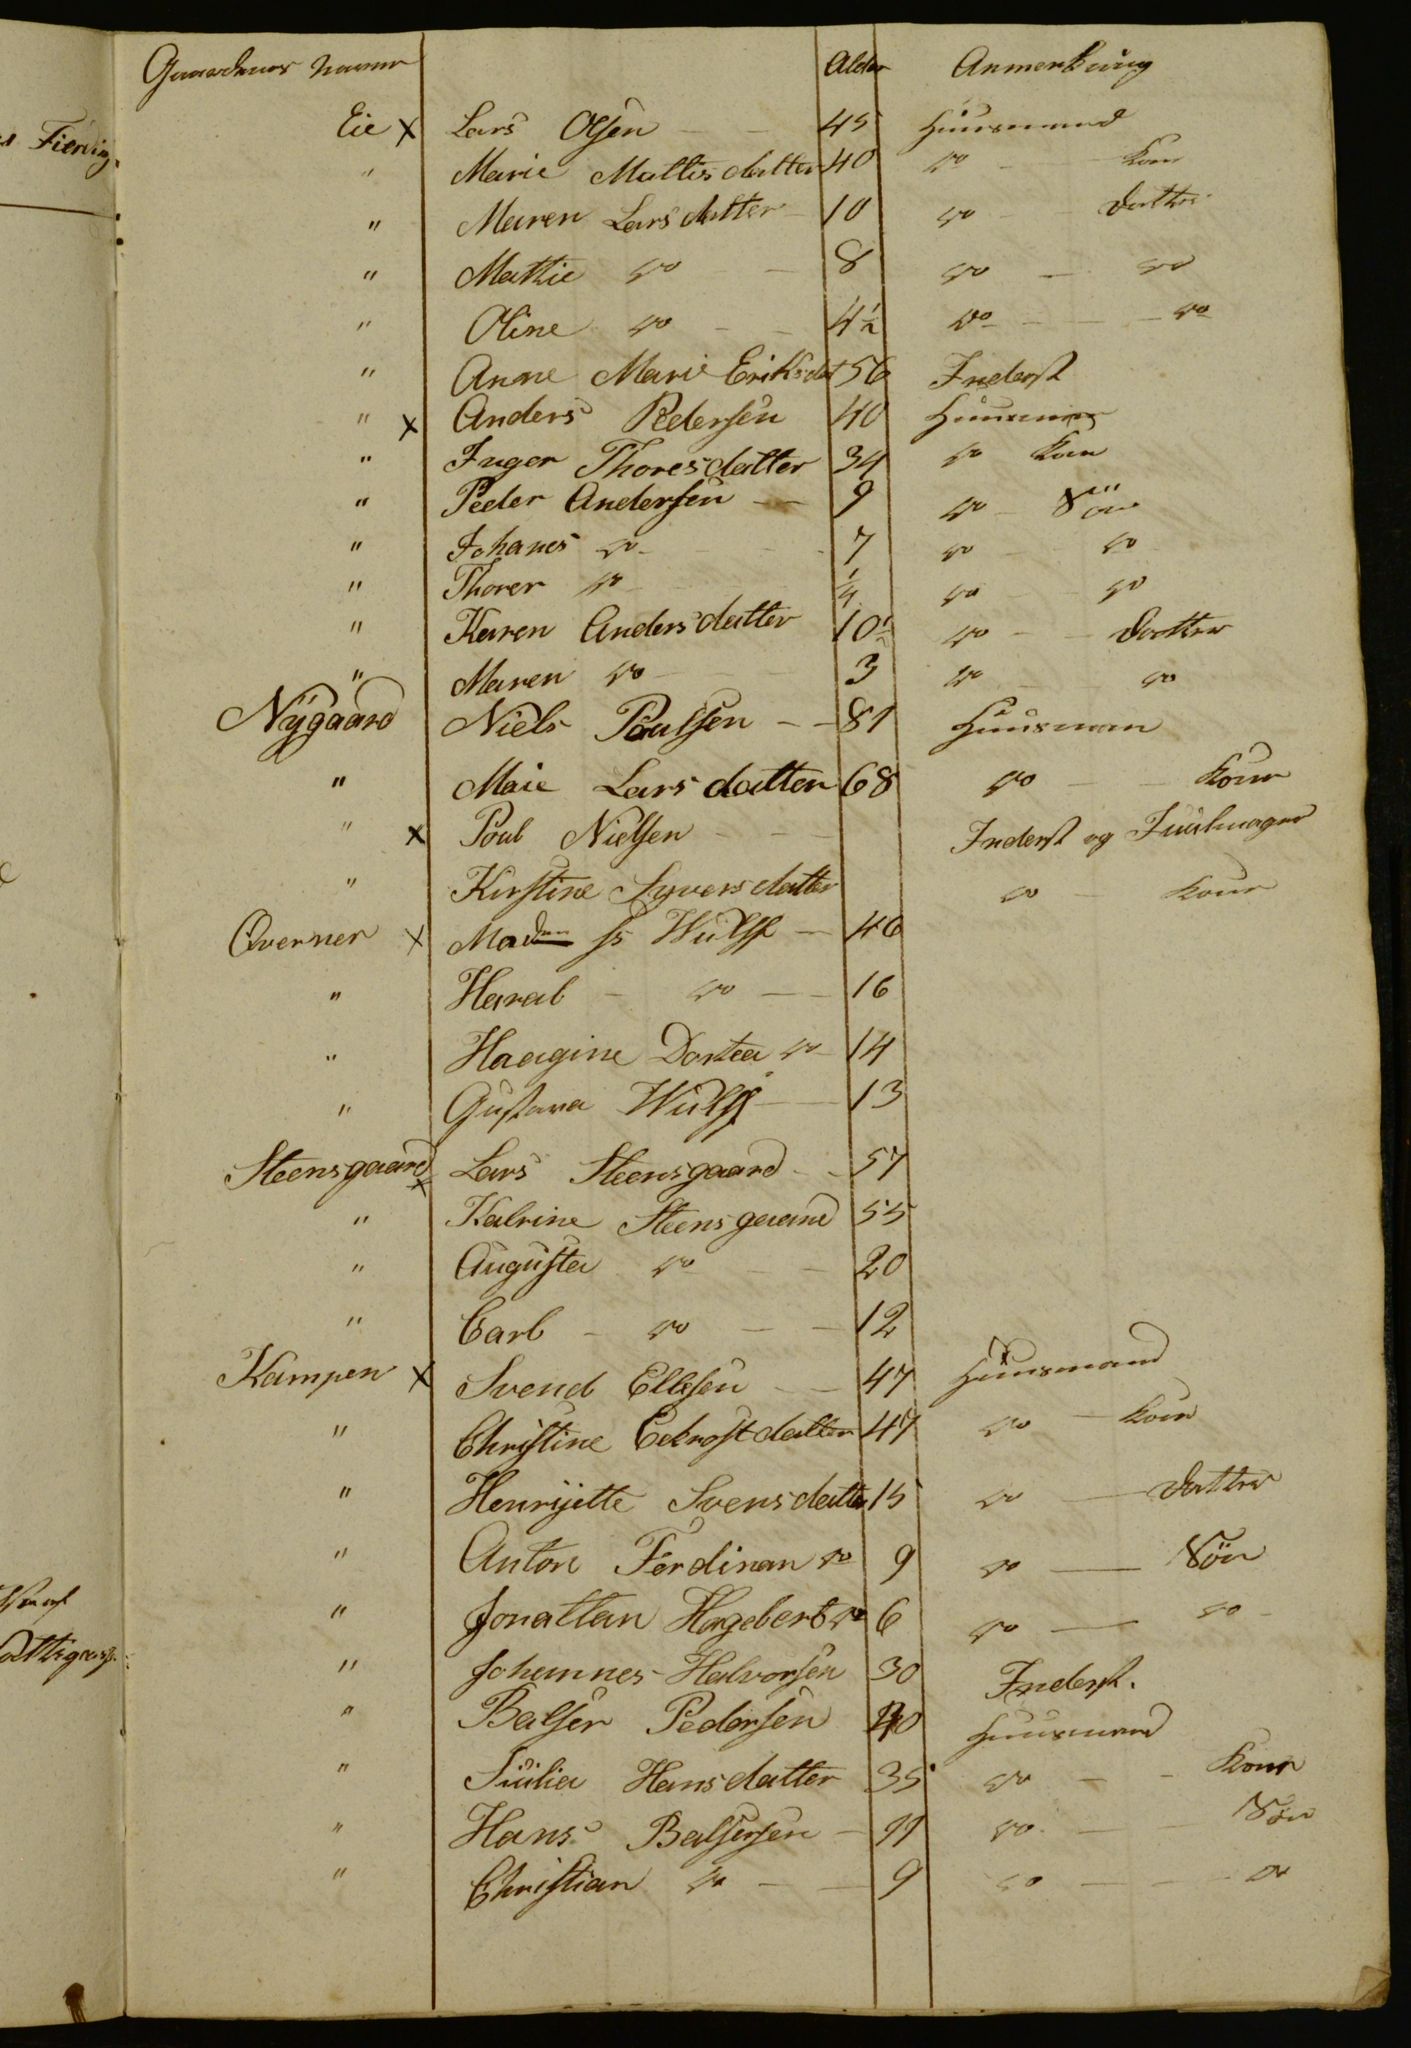 Gaardenes Navne Alder Anmerkning
Eie x Lars Olsen - - 45 Huusmand
" Marie Mattisdatter 40 do - Kone
" Maren Larsdatter - 10 do - Datter
" Mathie do - 8 do - do
" Oline do - - 4½ do - - do
" Anne Marie Eriksdat 56 Inderst
" x Anders Pedersen 40 Huusman
" Inger Thoresdatter 34 do Kone
" Peder Andersen - - 9 do - Sön
" Johanes do - - 7 do - do
" Thorer do - ¼ do - do
" Karen Andersdatter 10½ do - - Datter
" Maren do - - 3 do - - do
Nÿgaard Niels Poulsen - - 81 Huusman
" Maie Larsdatter 68 do - - Kone
" x Poul Nielsen - - - Inderst og
" Kirstine Syversdatter do - Kone
Overner x Madm Wulff - 46
" Haral - do - - 16
" Haagine Dortea do - 14
" Gustava Wulff - - 13
Steensgaard x Lars Steensgaard - - 57
" Katrine Steensgaard 55
" Augusta do - - 20
" Carl - do - - 12
Kampen x Svend Ellefsen - - 47 Huusmand
" Christine datter 47 do - Kone
" Henrijette Svensdatter 15 do - Datter
" Anton Ferdinan do 9 do - Sön
" Jonattan Hagebert do 6 do - do -
" Johannes Halvorsen 30 Inderst.
" Balser Pedersen 40 Huusmand
" Siulia Hansdatter 35 do - - Kone
" Hans Balsersen - 11 do - - Sön
" Christian do - - 9 do - - - do